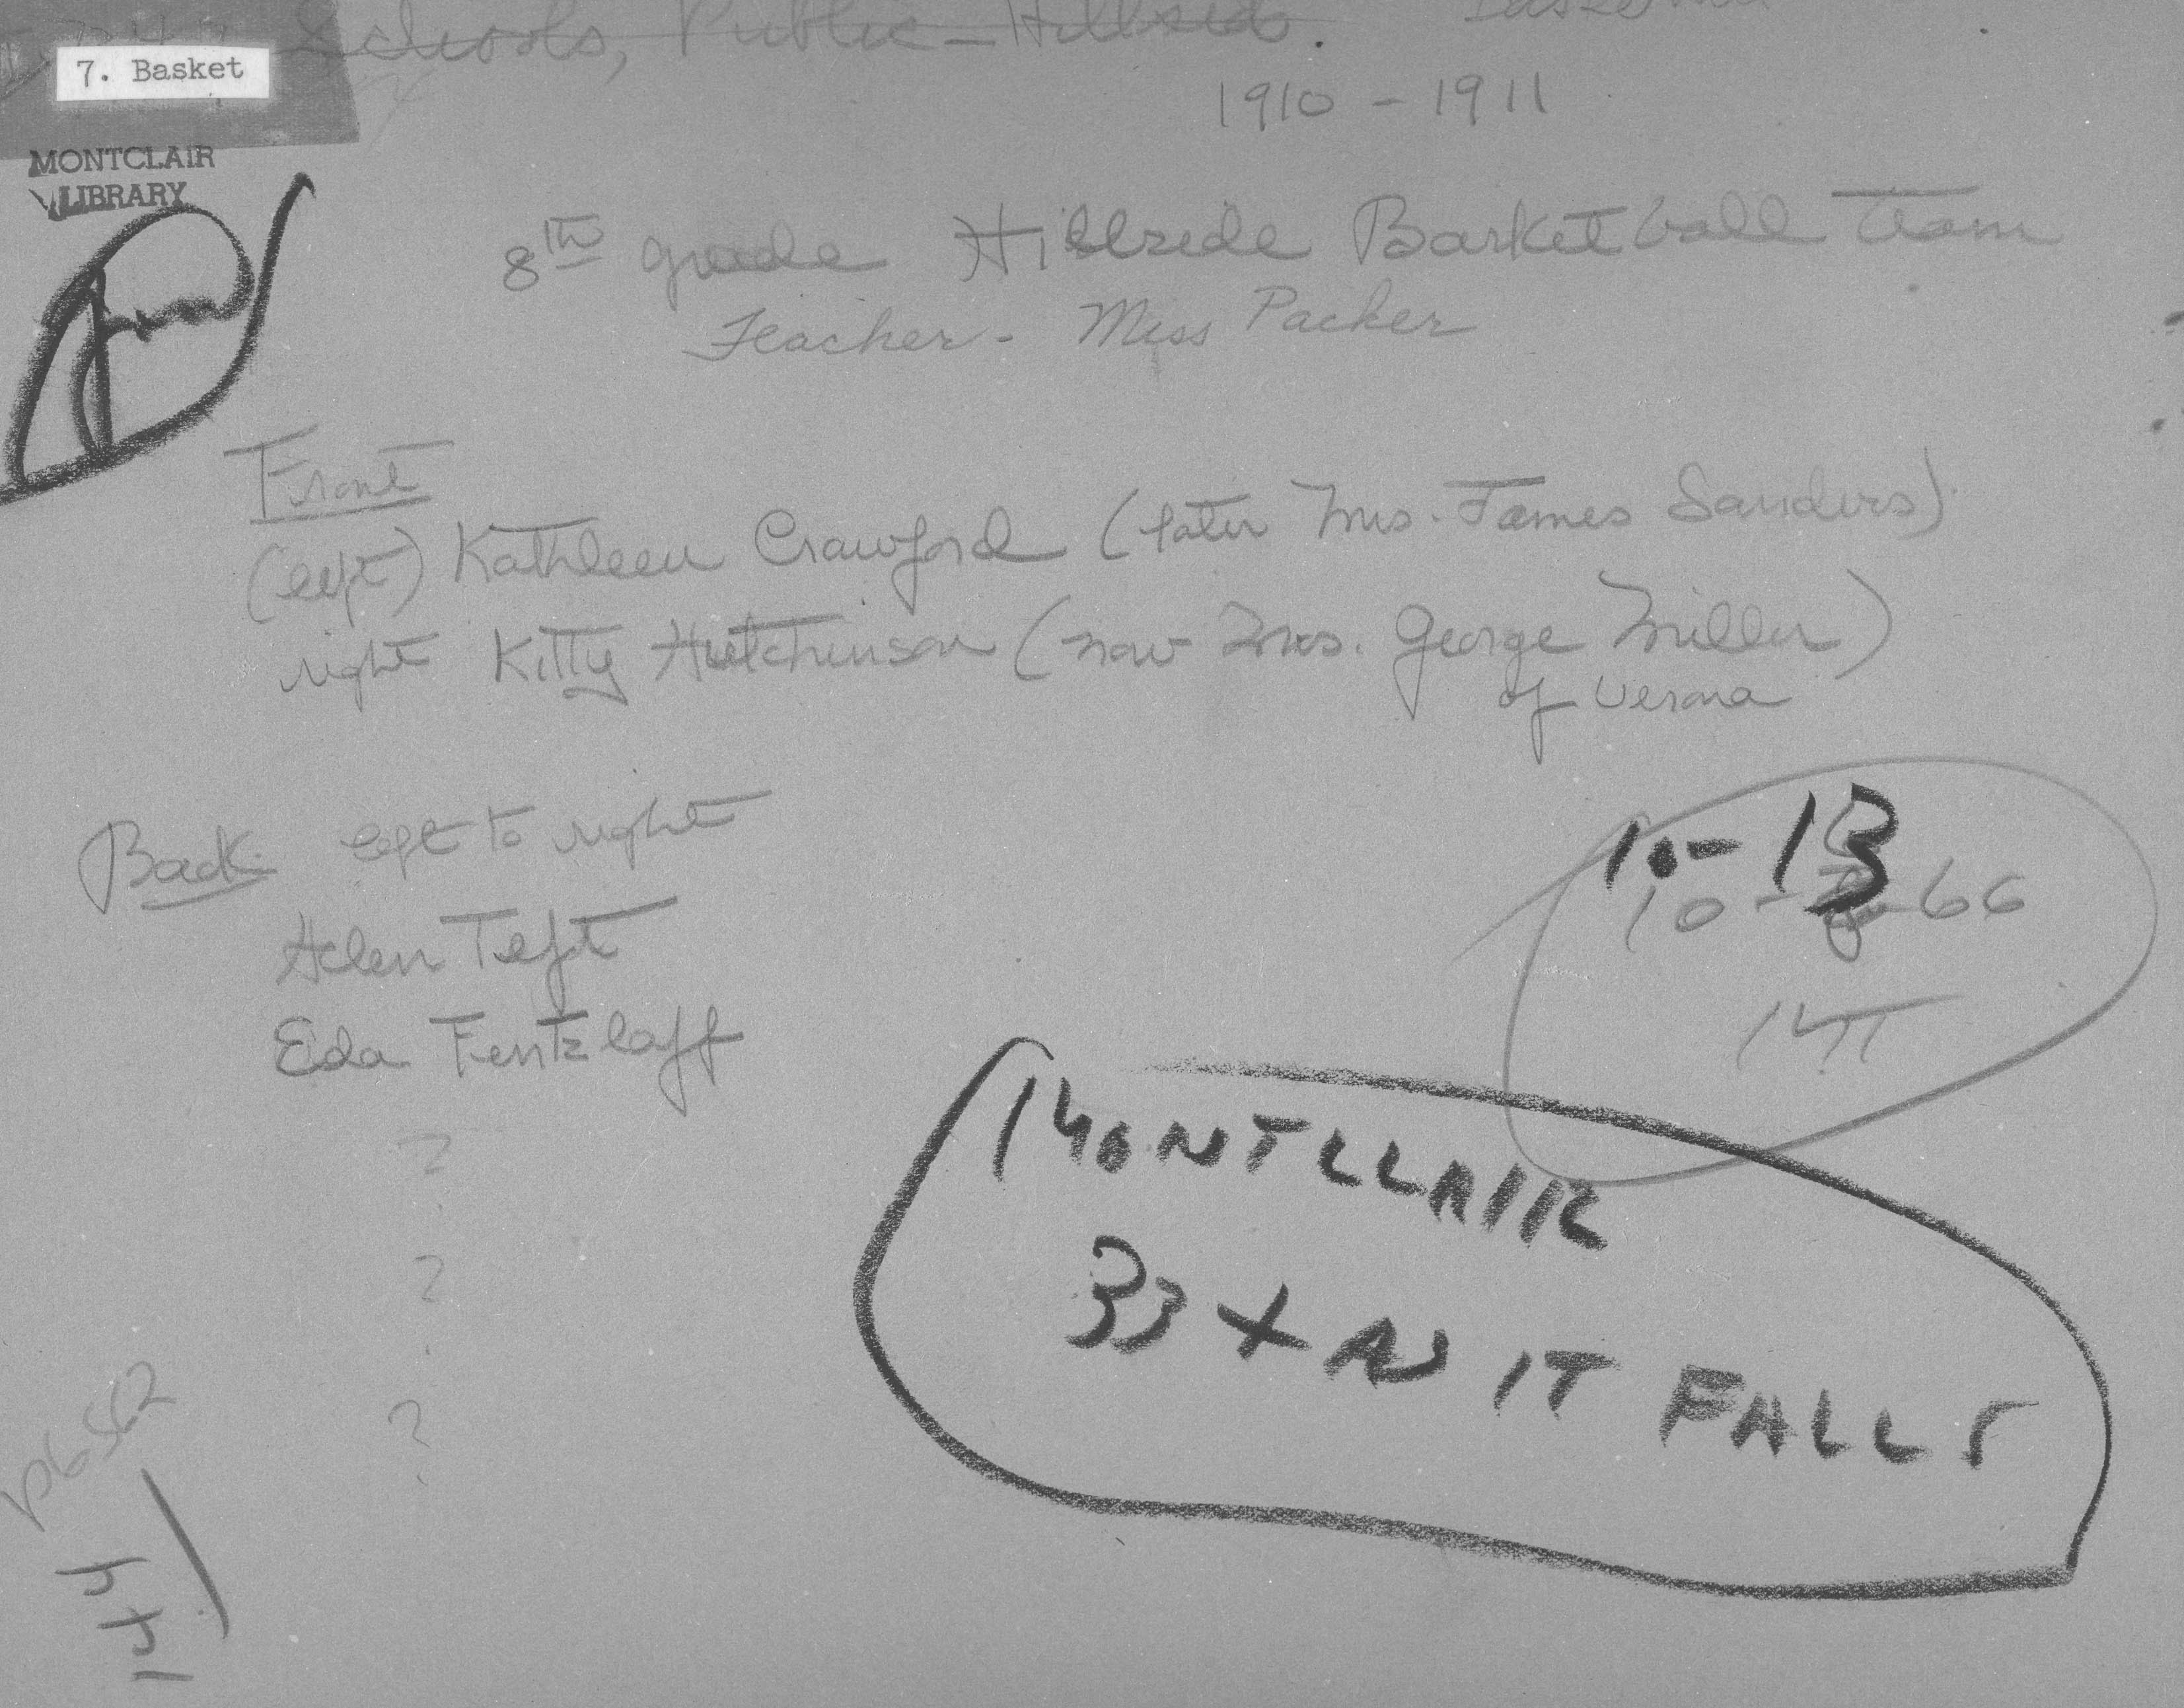 Schools, Public - Hillside.
7. Basket
1910 - 1911
MONTCLAIR
LIBRARY
8th grade Hillside Basketball team
Teacher - Miss Packer
Front
(left) Kathleen Crawford (later Mrs. James Sanders)
right Kitty Hutchinson (now Mrs. George Miller)
of Verona
Back left to right
10-13
10-8-66
Helen Teft
MT
Eda Fentzlaff
?
MONTCLAIR
?
33 X AS IT FALLS
?
144